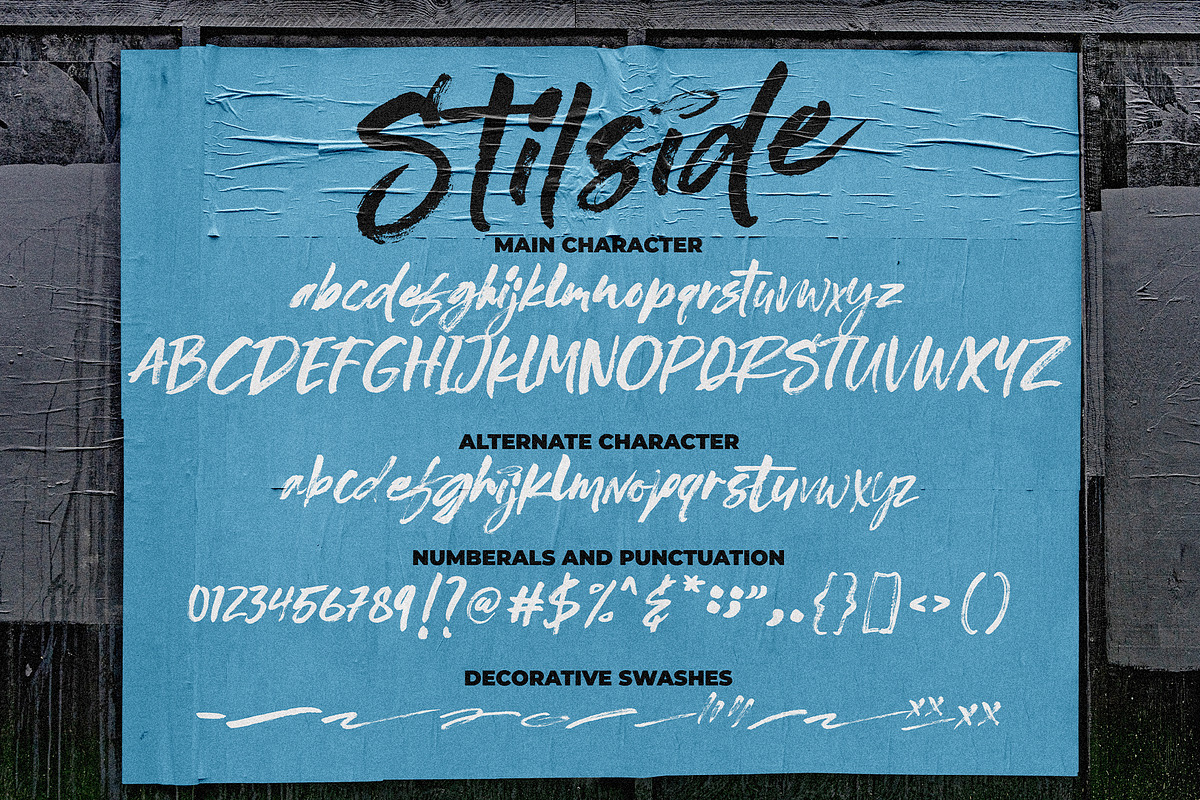 Stilside
MAIN CHARACTER
abcdefghijklmnopqrstuvwxyz
ABCDEFGHIJKLMNOPQRSTUVWXYZ
ALTERNATE CHARACTER
abcdefghijklmnopqrstuvwxyz
NUMBERALS AND PUNCTUATION
0123456789!?@#$%^&*:;",.{}[]<>()
DECORATIVE SWASHES